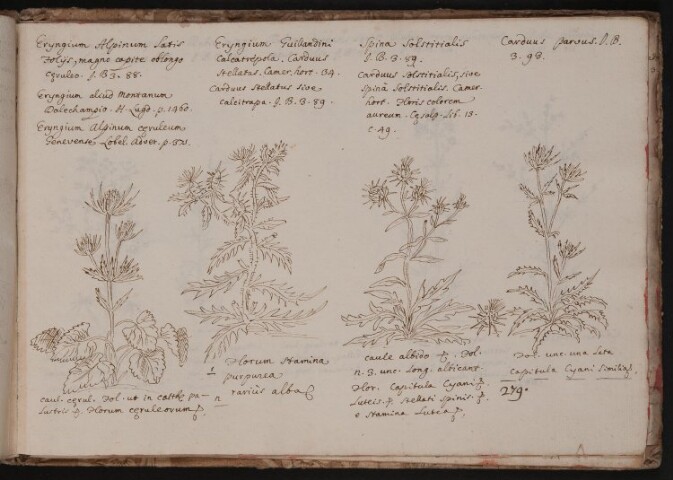 Eryngium Alpinum Latis
folijs, magno capite oblongo
cęruleo. J. B. 3. 88.
Eryngium aliud montanum
Dalechampio. H. Lugd. p. 1460.
Eryngium Alpinum cęruleum
Genevense Lobel. Adver. p.
Eryngium Guilandini
Calcatrepola, Carduus
stellatus. Camer. hort. 134.
Carduus stellatus sive
calcitrapa. J. B. 3. 89.
Spina solstitialis
J. B. 3. 89.
Carduus solstitialis, sive
spina solstitialis. Camer.
hort. floris colorem
aureum. Cęsalp. lib. 13.
c. 49.
Carduus parvus. J. B.
3. 93.
caul. cęrul. fol. ut in caltha pa-
lustris florum cęruleorum
florum stamina
purpurea
rariùs alba
caule albido fol.
n. 3. unc. long. albicant.
flor. Capitula Cyani
luteis stellati spinis
e stamina lutea
fol. unc. una lata
capitula Cyani similia.
279.